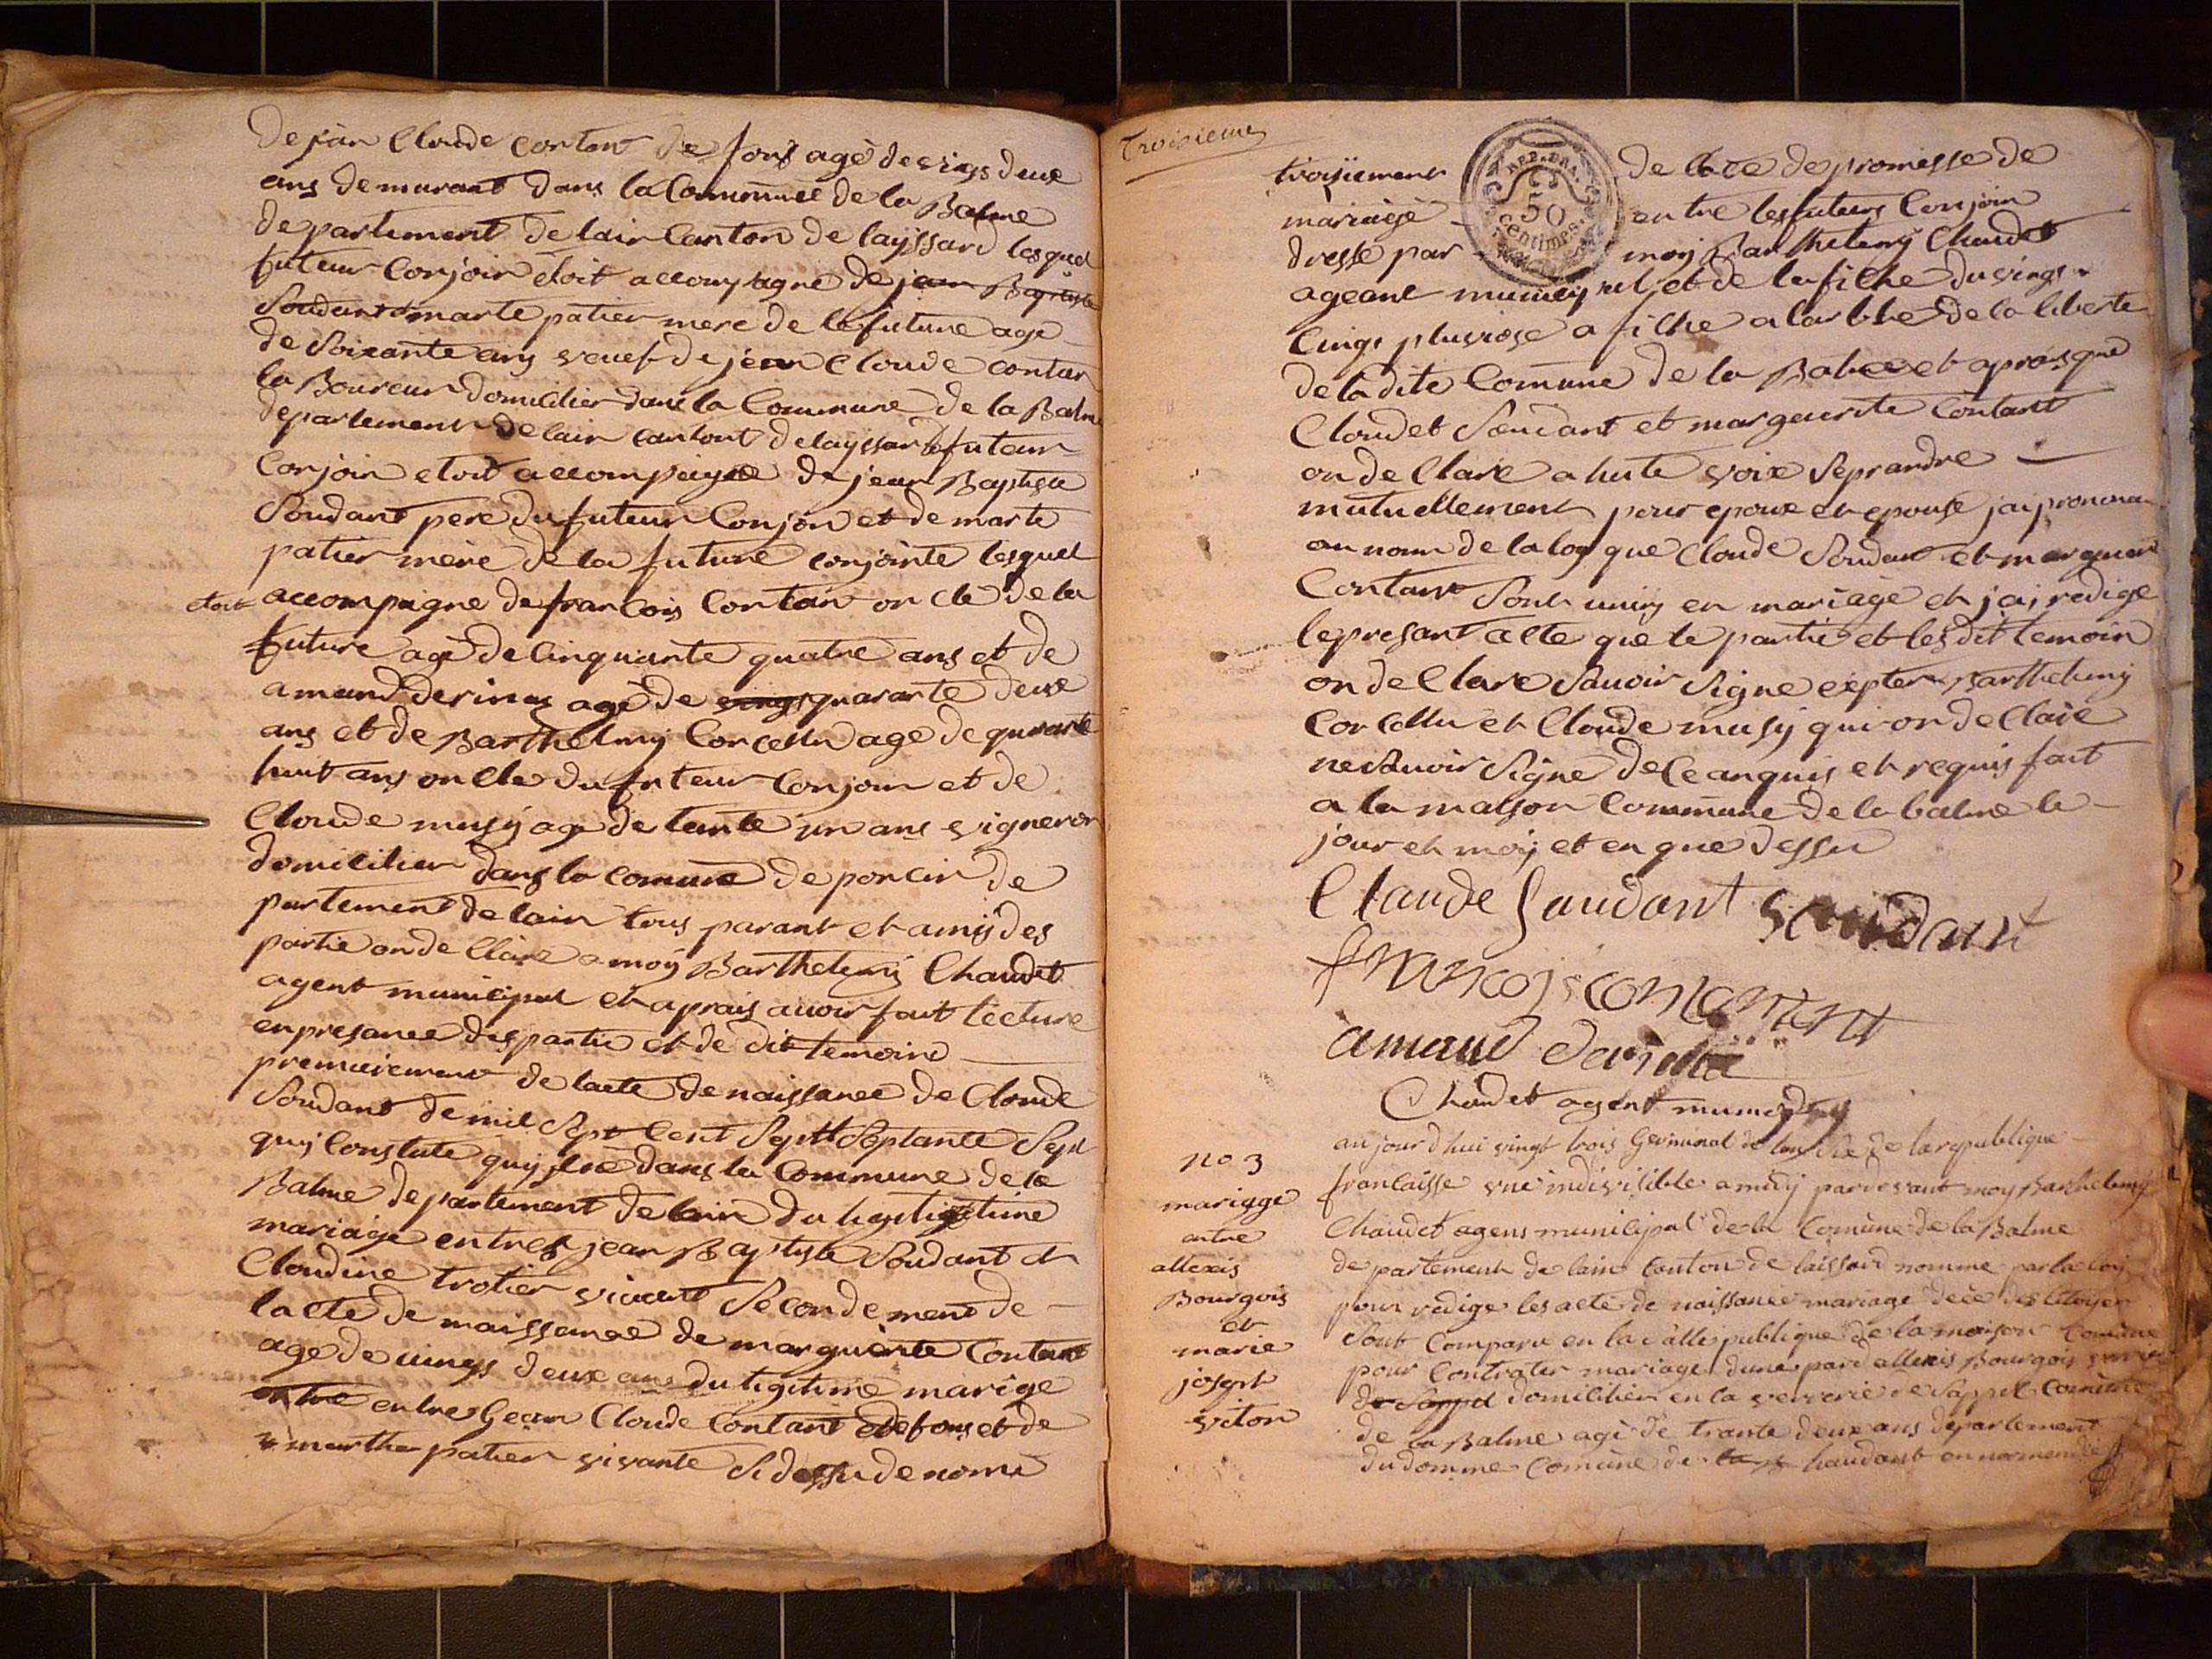 De jan Claude contant de fons agé de vings deux
ans demurant dans la Commune de la Balme
departement de lain Canton de layssard lesquel
futeur Conjoin étoit accompagne de jean Baptiste
Soudant marte patier mere de la future age
de Soixante ans veuef de jean Cloude contan
laBoureur domicilier dans la Commune de la Balme
departement delain cantont delayssard futeur
Conjoin etoit accompaigne de jean Baptiste
Soudant pere du futeur Conjoin et de marte
patier mère de la future conjointe lesquel
etoit accompaigne de francois Contant on cle de la
future agé de Cinquante quatre ans et de
amand derinas agé de vings quarante deux
ans et de Barthelmy Corcellu age de quarante
huit ans on cle du futeur Conjoin et de
Cloude musy age de tente un ans vigneron
domicilier dans la comune de poncin de
partement de lain tous parant et amis des
partie onde Clare a moy Barthelemy Chaudet
agent municipal et aprais avoir fait lecture
enpresance des partie et de dit temoins
premierement de lacte de naissance de Cloude
Soudant de mil Sept Cent Sept Septante Sept
quy Constate quy né dans la Commune de la
Balme departement de lain du legitime
mariage entres jean Baptiste Soudant et
Cloudine trotier vivant Secondement de
lacte de naissance de marguerite Contant
age de vings deux ans du legitime marige
entre entre Gean Cloude Contant defons et de
marthe patier vivante Sidessu de nomé
Troisieme
troisiement de lacte de promesse de
mariage entre les futeurs Conjoin
dresse par moy Barthelemy Chaudet
ageant municipal et de lafiche du vings
Cings pluviose afiche a larbre de la liberte
de ladite Comune de la Balme et aprais que
Cloudet Soudant et marguerite Contant
on de Clare a hute voix Seprandre
mutuellement pour epoux et epouse jai prononcé
au nom de la loy que Cloude Soudant et marguerite
Contant Sont unis en mariage et jai redige
lepresant acte que le partie et les dit temoin
on de Clare Savoir Signe expter Barthelemy
Corcellu et Cloude musy qui on de Clare
ne Savoir Signe de Ce anquis et requis fait
a la maison Commune de la balme le
jour et moy et en que dessu
Claude Saudant Saudant
francois contant
amand
Chaudet agent
no 3
mariage
entre
allexis
Bourgois
et
marie
joseph
viton
aujourdhui vingt trois Germinal de lan de la republique
francaisse une indivisible a midy pardevant moy Barthelemy
Chaudet agens municipal de la Comune de la Balme
departement de lain Canton de laissard nomme par la loy
pour redige les acte de naissance mariage décé des Citoyen
Sont Comparu en la Salle publique de la maison Comune
pour Contrater mariage dune pard allexis Bourgois
de Sappel domicilier en la verrerie de Sappel Comune
de la Balme agé de trante deux ans departement
du domme Comune de haudant en normendie